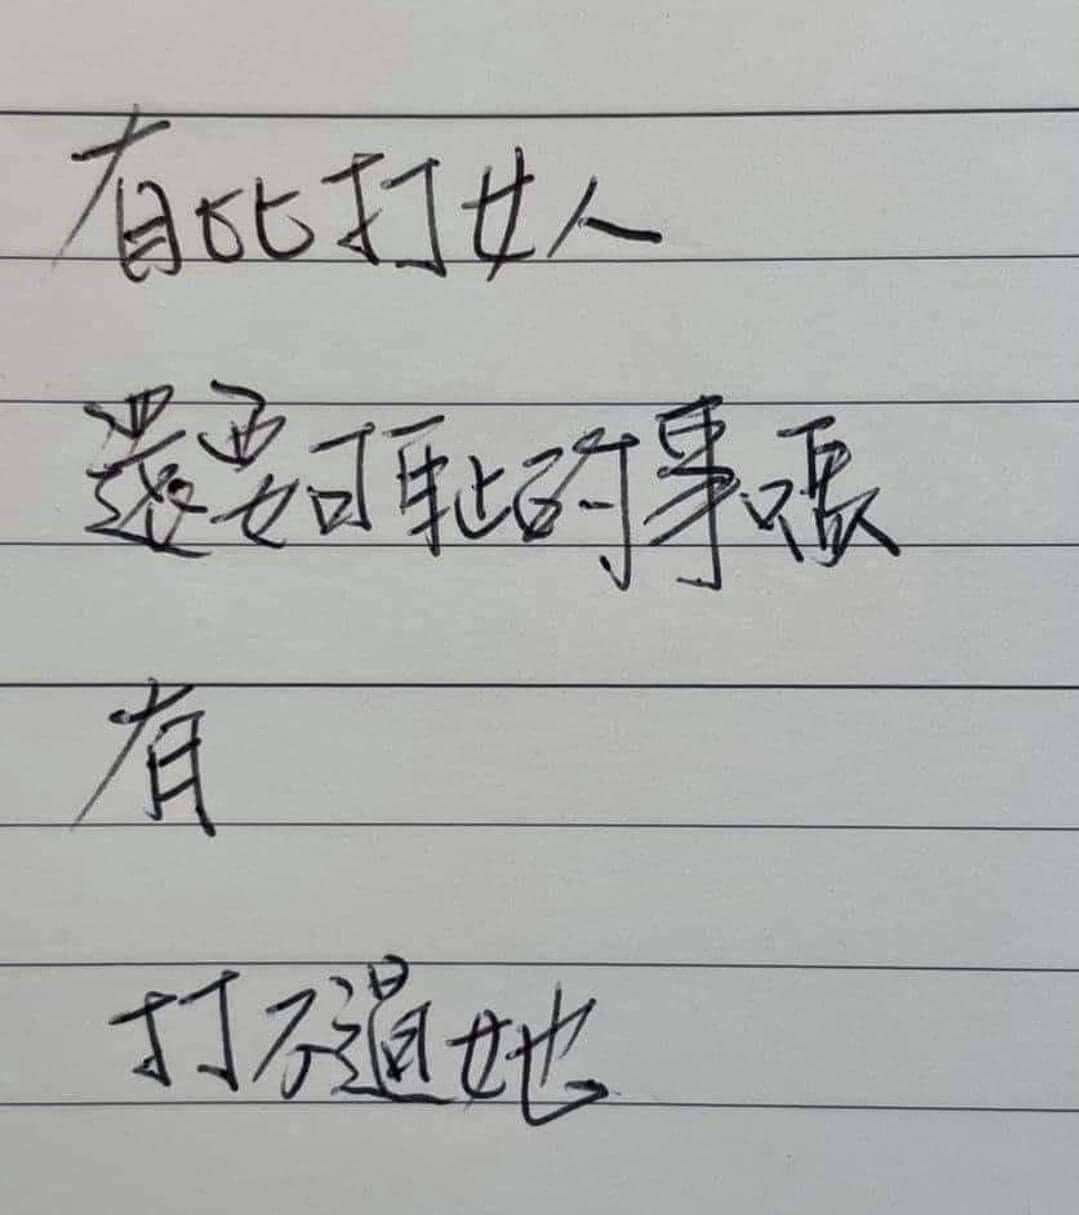 有比打女人
還要可恥的事嗎
有
打不過她